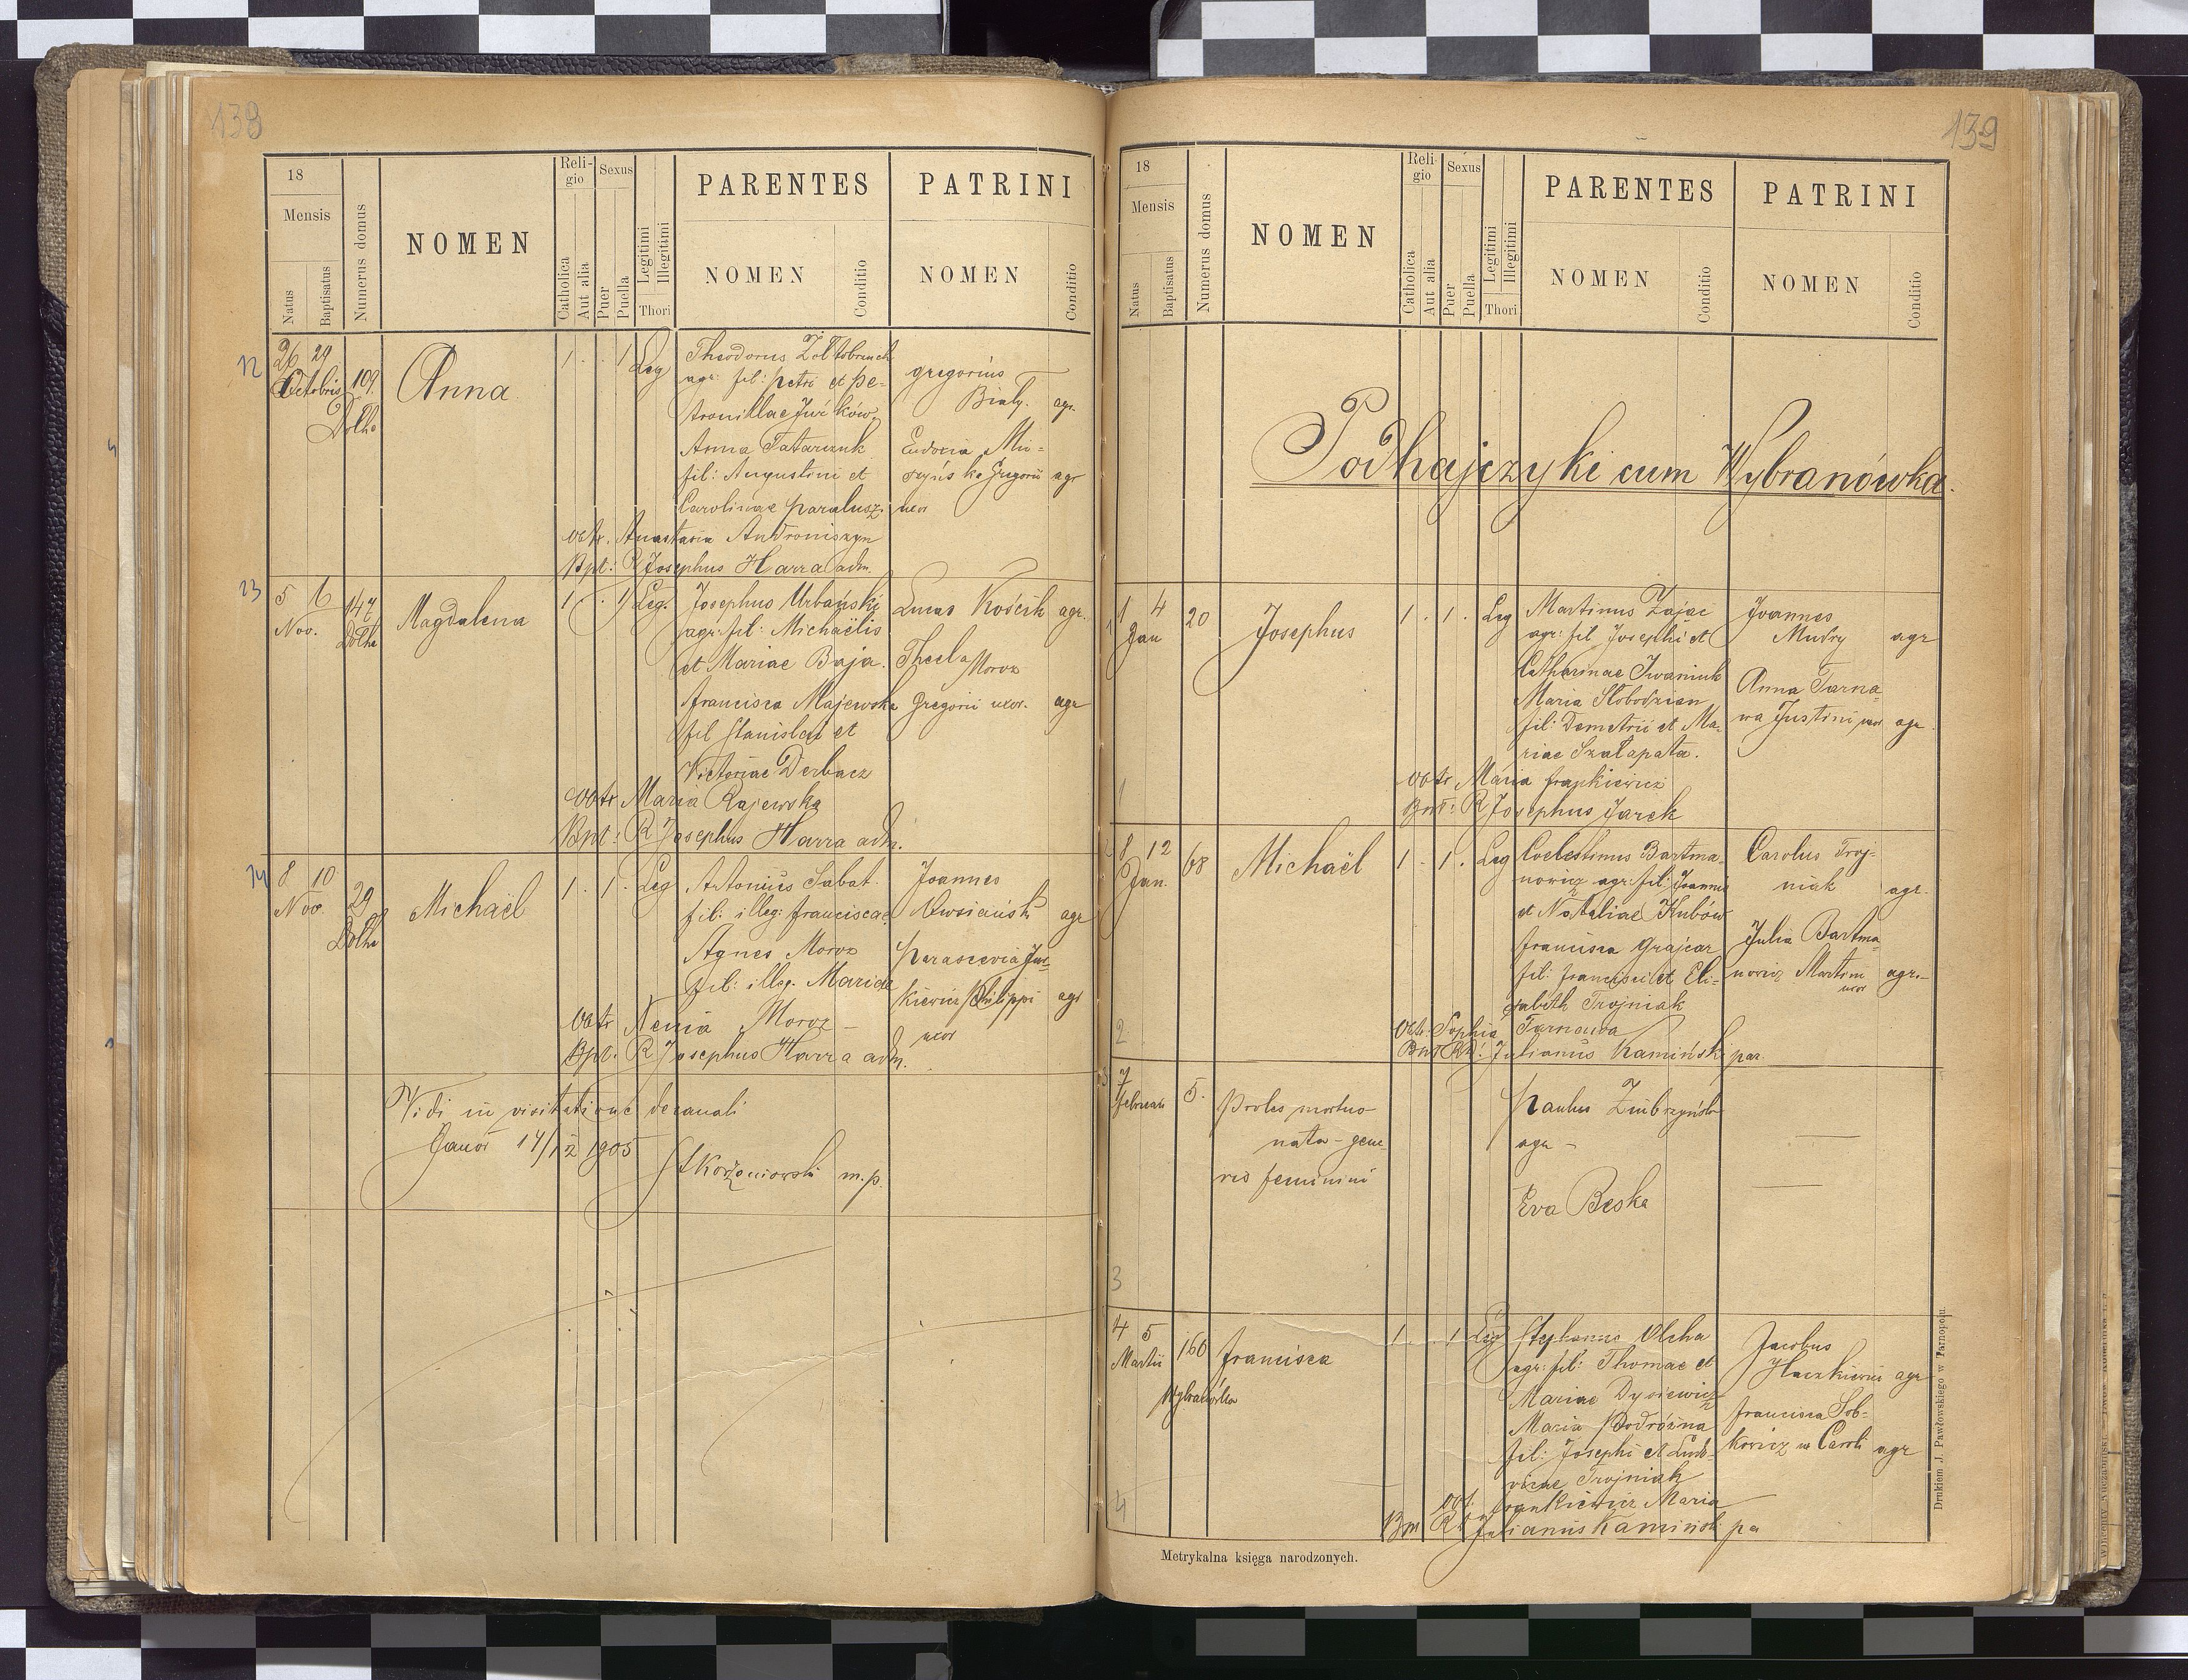 138
18
Mensis
Natus
Baptisatus
Numerus domus
NOMEN
Reli-
gio
Catholica
Aut alia
Sexus
Puer
Puella
Legitimi
Illegitimi
Thori
PARENTES
NOMEN
Conditio
PATRINI
NOMEN
Conditio
12
26 29
Octobris
109
Dolhe
Anna
1 . . 1 Leg
Theodorus Żołtobruch
agr: fil: Petri et Pe-
tronillae Jurków
Anna Tatarczuk
fil: Augustini et
Carolinae Paralusz
gregorius
Biały. agr.
Eudoxia
Gregorii agr
uxor
obtr. Anastasia Androniszyn
Bpt: R Josephus Harra adm.
13
5 6
Nov.
147
Dolhe
Magdalena
1 . . 1 Leg.
Josephus Urbański
agr: fil: Michaëlis
et Mariae Baja.
Francisca Majewska
fil Stanislai et
Victoriae Derbacz
Lucas Kościk agr.
Thecla Moroz
Gregorii uxor. agr
obtr Maria Rajewska
Bpt: R Josephus Harra adm.
14
8 10
Nov.
29
Dolhe
Michaël
1 . 1 . Leg
Antonius Sabat
fil: illeg: Franciscae
Agnes Moroz
fil: illeg. Mariae
Joannes
Owsiański agr
Parascevia Jur-
kiewicz Philippi agr
uxor
obtr Xenia Moroz
Bpt: R Josephus Harra adm.
Vidi in visitatione decanali
Janów 14/12 1905
Korzeniowski m.p.
139
18
Mensis
Natus
Baptisatus
Numerus domus
NOMEN
Reli-
gio
Catholica
Aut alia
Sexus
Puer
Puella
Legitimi
Illegitimi
Thori
PARENTES
NOMEN
Conditio
PATRINI
NOMEN
Conditio
Podhajczyki cum Wybranówka.
1 4
Jan
20
Josephus
1 . 1 . Leg
Martinus Zając
agr: fil Josephi et
Catharinae Iwaniuk
Maria Słobodzian
fil: Demetrii et Ma-
riae Szałapata.
Joannes
Mudry agr
Anna Tarna-
wa Justini uxor agr.
obtr. Maria Frankiewicz
Bpt: R Josephus Jarek
1
8 12
Jan.
68
Michaël
1 . 1 . Leg
Coelestinus Bartma-
nowicz agr: fil: Joannis
et Nataliae Kubów
Francisca Grajcar
fil: Francisci et Eli-
sabeth Trojniak
Carolus Troj-
niak agr.
Julia Bartma-
nowicz Martini agr.
uxor
Obtr. Sophia Tarnawa
Bpt RR: Julianus Kamiński par.
2
7
Februarii
5.
Proles mortuo
nata - gene-
ris feminini
Paulus
agr -
Eva Beska
3
4 5
Martii
160
Wybranówka
Francisca
1 . . 1 Leg
Stephanus Olcha
agr: fil: Thomae et
Mariae Dysiewicz
Maria Podróżna
fil: Josephi et Ludo-
vicae Trojniak
Jacobus
Haczkiewicz agr
Francisca Sob-
kowicz ux Caroli agr
obt. Frankiewicz Maria
Bpt R Julianus Kamiński pa
4
Metrykalna księga narodzonych.
Drukiem J. Pawłowskiego w Tarnopolu.